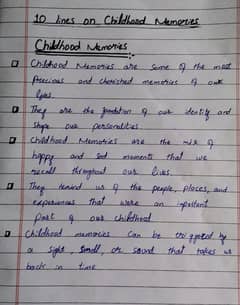 10 lines on Childhood Memories
Childhood Memories
Childhood Memories are some of the most
precious and cherished memories of our
lives.
They are the foundation of our identity and
shape our personalities.
Childhood Memories are the mix of
happy and sad moments that we
recall throughout our lives.
They remind us of the people, places, and
experiences that were an important
part of our childhood
Childhood memories can be triggered by
a sight, smell, or sound that takes us
back in time